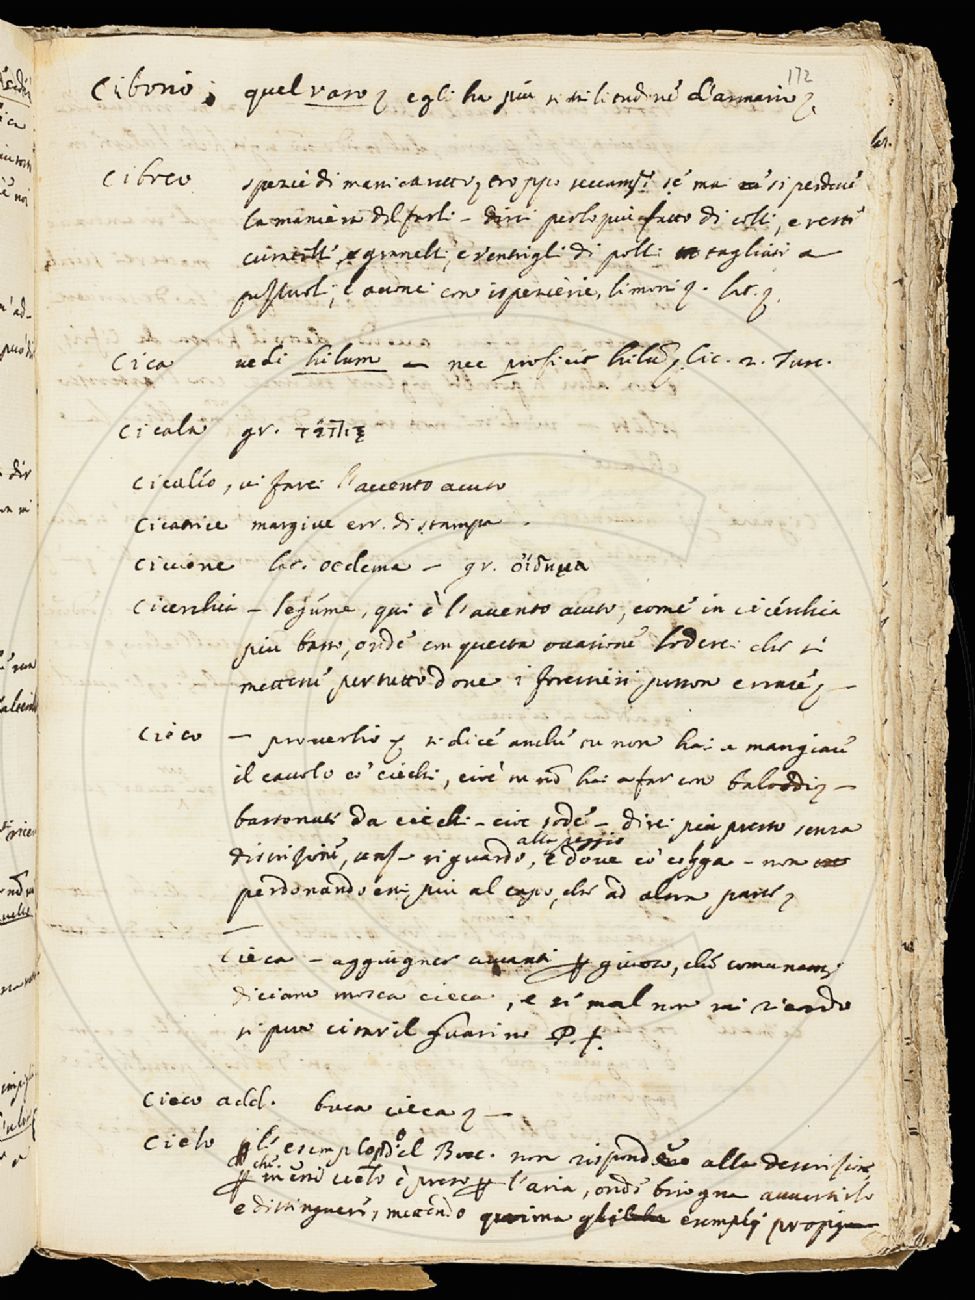 172
Ciborio; quel vaso, egli ha più similitudine d'armario,
Cibreo spezie di manicaretto, troppo seccamte: sè mai si perdesse
la maniera del farli - direi perlopiù fatto di colli, e
curatelli, e granelli, e ventrigli di polli tagliati a
pezzuoli, e acconci con ispezierie, limoni &. lat.
Cica vedi hilum - nec proficit hilu, Cic. 2. Tusc.
Cicala gr. τέττιξ
Cicalío, vi farei l'accento acuto
Cicatrice margine err. di stampa.
Ciccione lat. oedema - gr. οἴδημα
Cicerchia - legúme, qui è l'accento acuto, come in cicérchia
più basso, onde con questa occasione loderei che si
mettesse pertutto dove i forestieri posson errare, -
Cieco - proverbio, si dice anche tu non hai a mangiare
il cavolo co' ciechi, cioè tu nõ hai a far con balordi, -
bastonate da ciechi - cioe sode - direi più presto senza
discrizione, senz- riguardo, e dove co' cogga - non
alla peggio
perdonando essi più al capo, che ad altra parte,
Cieca - aggiugner avanti giuoco, che comunemte
diciamo mosca cieca, e si mal non mi ricordo
si può citar il Guarino P. f.
Cieco add. buca cieca, -
Cielo l'esemplo del Bocc. non risponde alla descrizione
che
in essi cielo è preso l'aria, onde bisogna avvertirlo
e distinguere, mettendo esempli propi